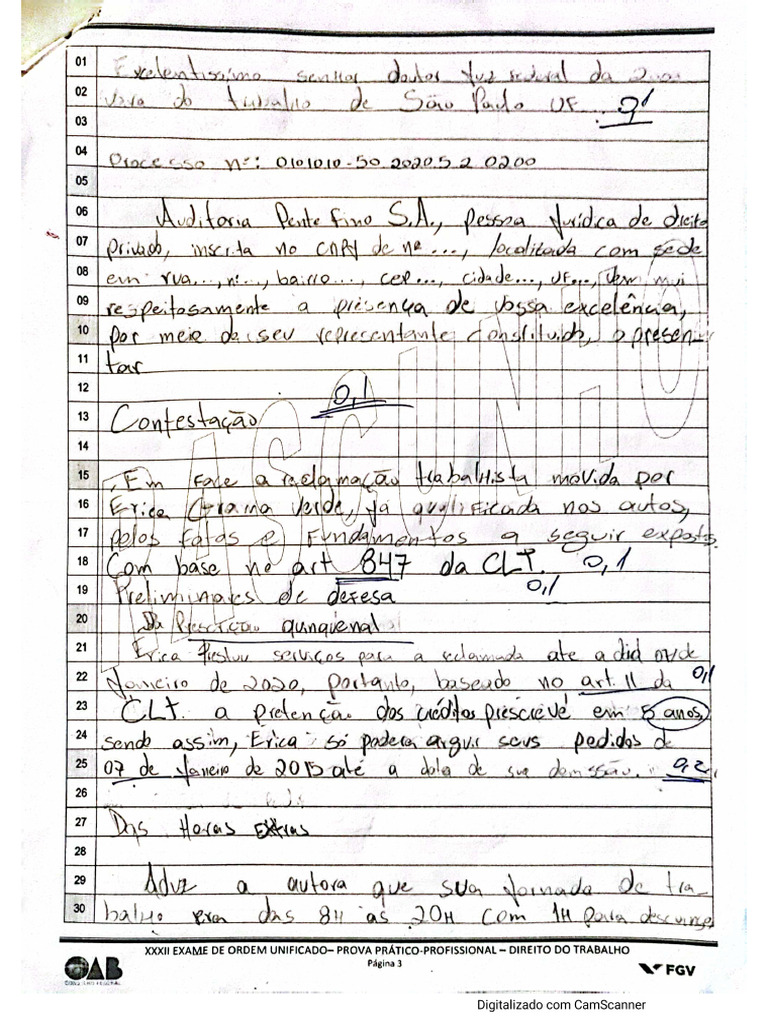 01 Excelentissimo senhor doutor Juz federal da 200a
02 vara do trabalho de São Paulo UF 0,1
03
04 Processo nº: 0101010-50.2020.5.2.0200
05
06 Auditoria Pente Fino S.A., pessoa Jurídica de direito
07 privado, inscrita no CNPJ de nº ..., localizada com sede
08 em rua..., nº..., bairro..., cep..., cidade..., UF..., vem mui
09 respeitosamente a presença de vossa excelência,
10 por meio de seu representante constituido, apresen-
11 tar
12 0,1
13 Contestação
14
15 Em face a reclamação trabalhista movida por
16 Erica Grama Verde, já qualificada nos autos,
17 pelos fatos e Fundamentos a seguir expostos.
18 Com base no art 847 da CLT. 0,1
19 Preliminares de defesa 0,1
20 Da Prescrição qunquenal
21 Erica Prestou serviços para a reclamada ate a dia 07 de
22 Janeiro de 2020, portanto, baseado no art. 11 da 0,1
23 CLT. a pretenção dos créditos prescreve em 5 anos,
24 sendo assim, Erica só podera arguir seus pedidos de
25 07 de Janeiro de 2015 até a data de sua demissão. 0,2
26
27 Das Horas Extras
28
29 Aduz a autora que sua Jornada de tra-
30 balho era das 8H as 20H com 1H para descanso,
RASCUNHO
XXXII EXAME DE ORDEM UNIFICADO– PROVA PRÁTICO-PROFISSIONAL – DIREITO DO TRABALHO
Página 3
OAB
CONSELHO FEDERAL
FGV
Digitalizado com CamScanner